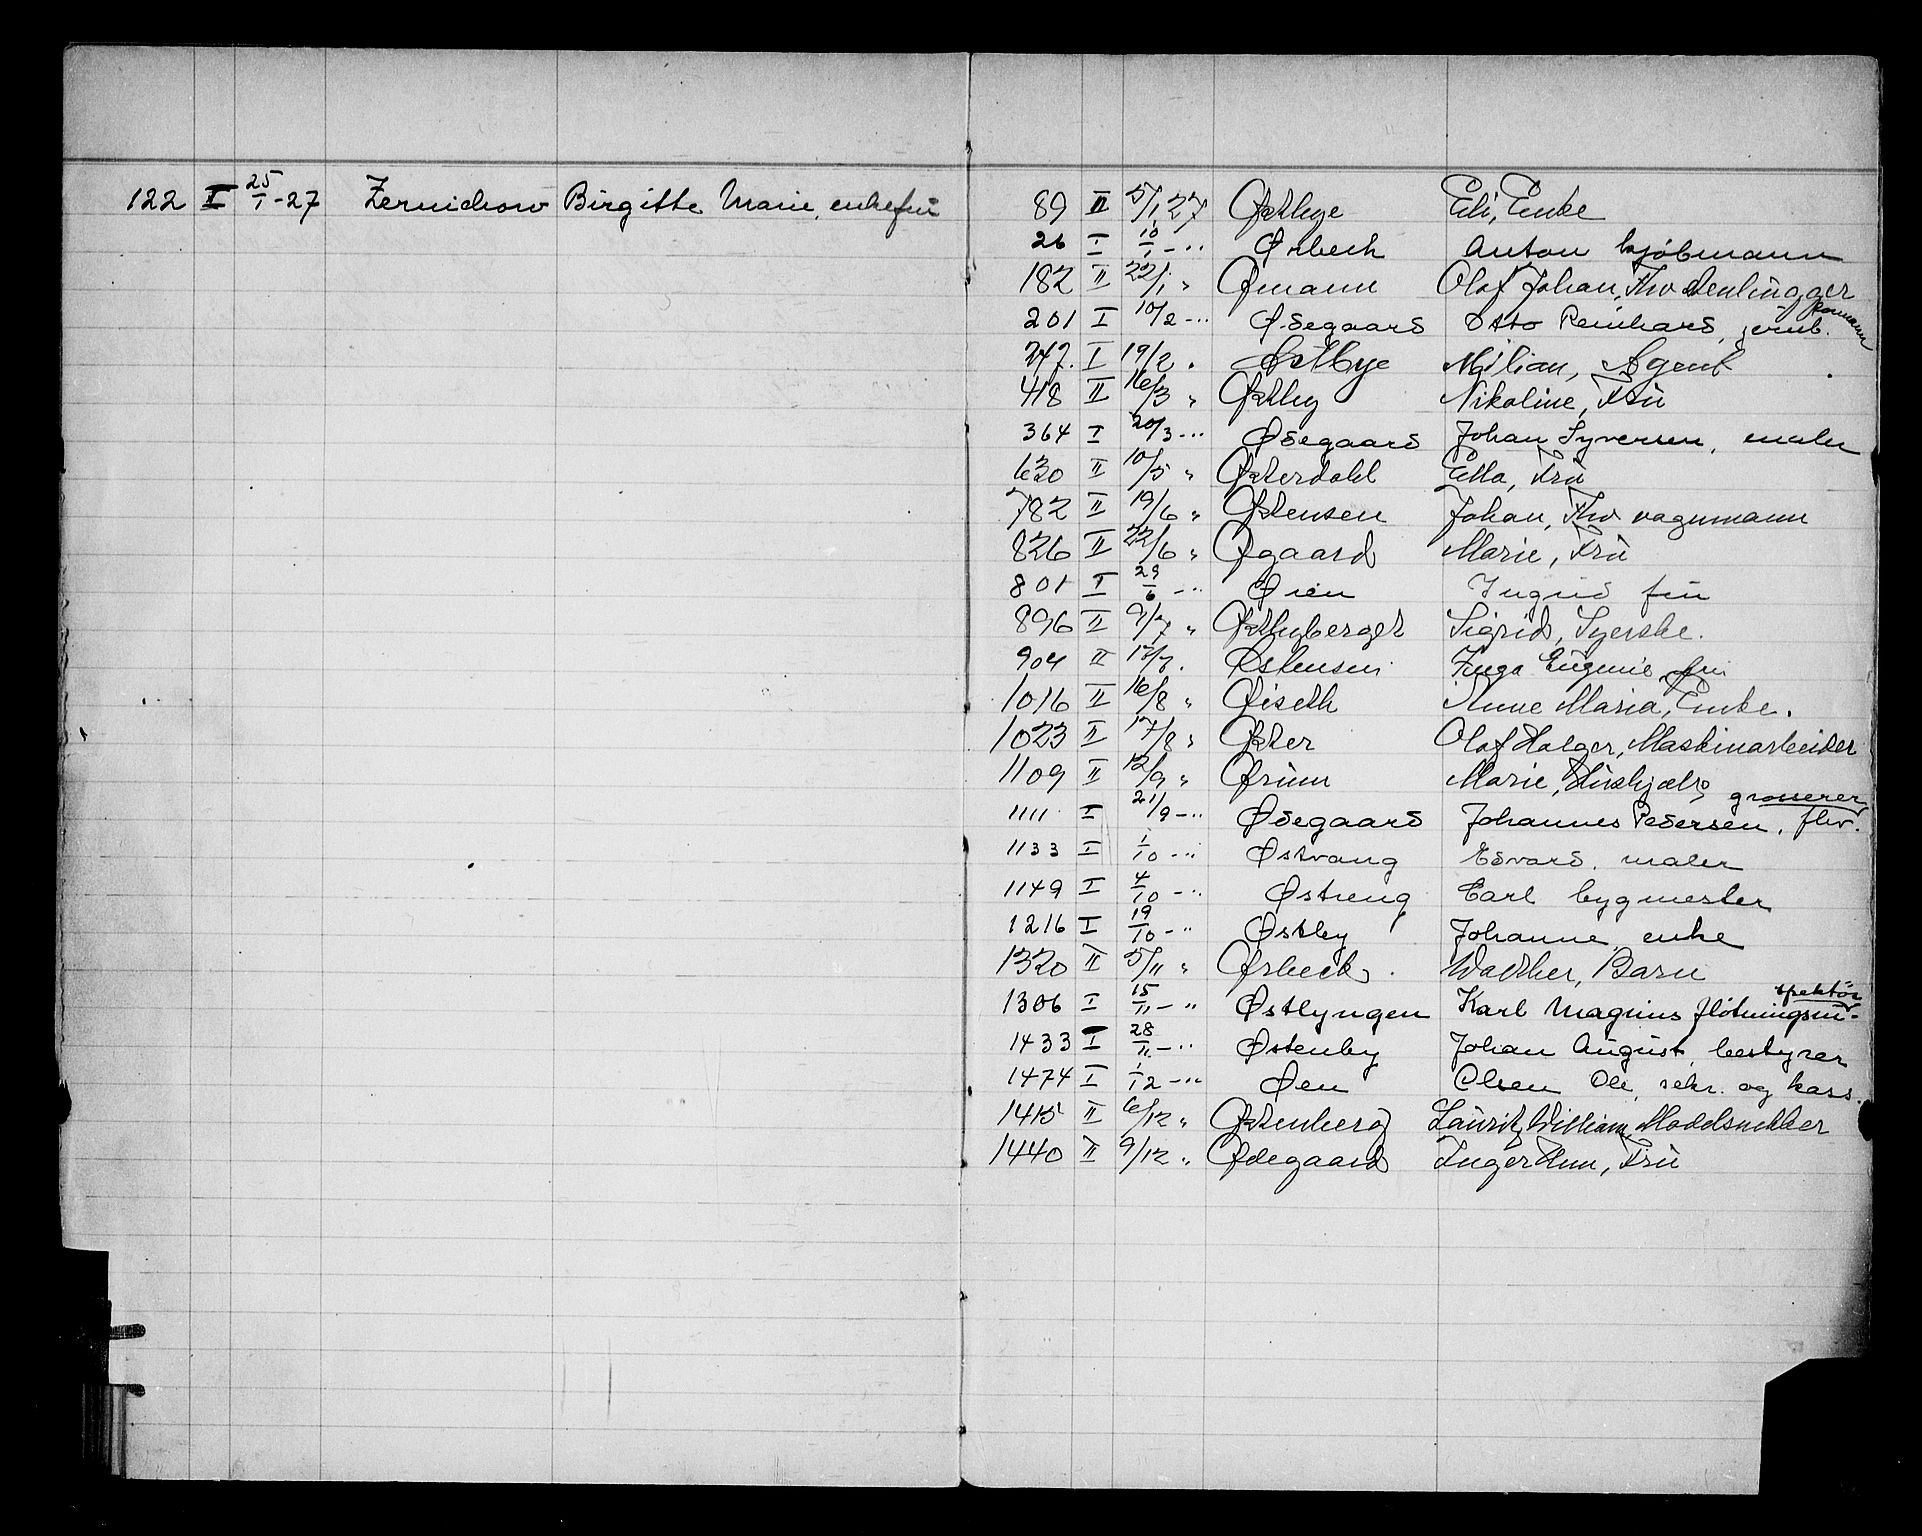 122 I 25/1 -27 Zernichow Birgitte Marie, enkefrü
89 II 5/1 27 Østbye Eli, Enke
26 I 10/1 - " Ørbech Anton kjøbmann
182 II 22/1 " Ømann Olaf Johan, Fhv
201 I 10/2 - " Ødegaard Otto Reinhard, jernb. formann
247. I 19/2 " Østbye Milian, Agent
418 II 16/3 " Østby Nikoline, Frü
364 I 20/3 - " Ødegaard Johan Syversen, maler
630 II 10/5 " Østerdahl Ella, Frü
782 II 19/6 " Østensen Johan, Fhv vognmann
826 II 22/6 " Øgaard Marie, Frü
801 I 29/6 - " Øien Ingrid frü
896 II 9/7 " Østbyberget Sigrid, Syerske.
904 II 13/7. Østensen Inga Eügenie, frü
1016 II 16/8 " Øiseth Anne Maria, Enke.
1023 II 17/8 " Øster Olaf Holger, Maskinarbeider
1109 II 12/9 " Ørünn Marie, Hüshjælp
1111 I 21/9 - " Ødegaard Johannes Pedersen, fhv. grosserer
1133 I 1/10 - " Østvang Edvard. maler
1149 I 4/10 - " Østreng Carl bygmester
1216 I 19/10 - " Østby Johanne, enke
1320 II 5/11 " Ørbeck. Walther, Barn
1306 I 15/11 - " Østlyngen Karl Magnüs fløtningsin- spektør
1433 I 28/11 - " Østenby Johan Aügüst, bestyrer
1474 I 1/12 - " Øen Olsen Ole, sekr. og kass.
1415 II 6/12 " Østenberg Laüritz William, Modelsnekker
1440 II 9/12 " Ødegaard Inger Ann, Frü